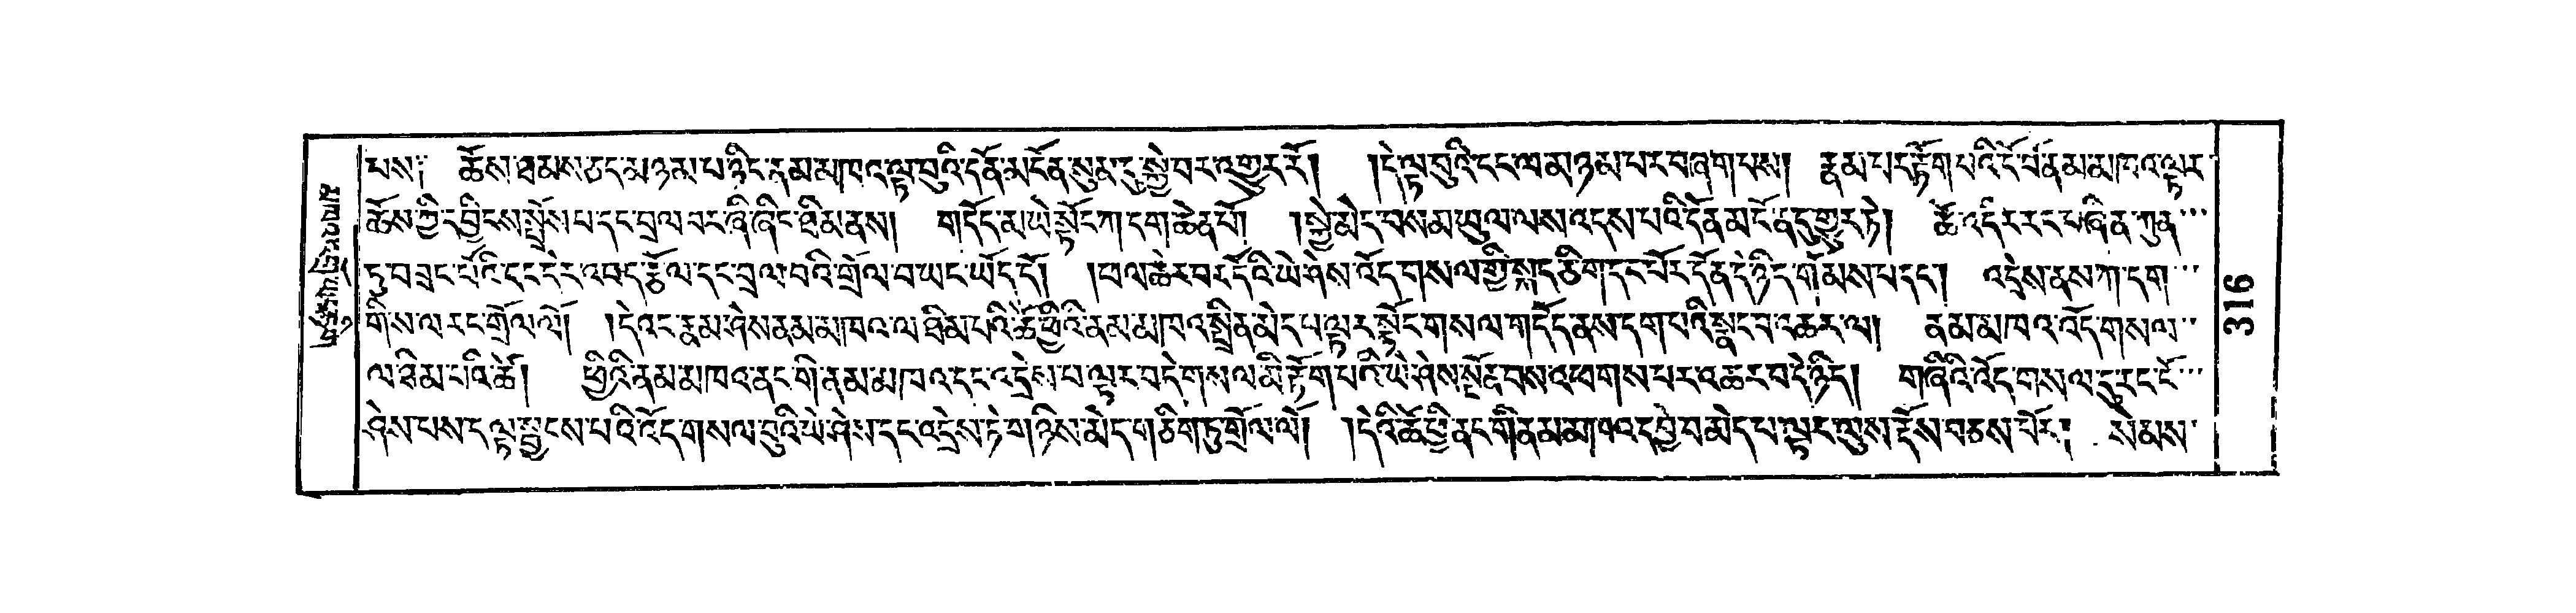 པས། ཆོས་ཐམས་ཅད་མཉམ་པ་ཉིད་ནམ་མཁའ་ལྟ་བུའི་དོན་མངོན་སུམ་དུ་སྐྱེ་བར་འགྱུར་རོ། །དེ་ལྟ་བུའི་ངང་ལ་མཉམ་པར་བཞག་པས། རྣམ་པར་རྟོག་པའི་ངོ་བོ་ནམ་མཁའ་ལྟར་
ཆོས་ཀྱི་དབྱིངས་སྤྲོས་པ་དང་བྲལ་བར་ཞི་ཞིང་ཐིམ་ནས། གདོད་མ་ཡེ་སྟོང་ཀ་དག་ཆེན་པོ། །སྐྱེ་མེད་བསམ་ཡུལ་ལས་འདས་པའི་དོན་མངོན་དུ་གྱུར་ཏེ། ཚེ་འདིར་རང་བཞིན་ཀུན་
ཏུ་བཟང་པོའི་ངང་དེར་འབད་རྩོལ་དང་བྲལ་བའི་གྲོལ་བ་ཡང་ཡོད་དོ། །བལ་ཆེར་བར་དོའི་ཡེ་ཤེས་འོད་གསལ་གྱི་སྐད་ཅིག་དང་པོར་དོན་དེ་ཉིད་གོམས་པ་དང་། འདྲེས་ནས་ཀ་དག་
གི་ས་ལ་རང་གྲོལ་ལོ། །དེ་འང་རྣམ་ཤེས་ནམ་མཁའ་ལ་ཐིམ་པའི་ཚེ་ཕྱིའི་ནམ་མཁའ་སྤྲིན་མེད་པ་ལྟར་སྟོང་གསལ་གདོད་ནས་དག་པའི་སྣང་བ་འཆར་ལ། ནམ་མཁའ་འོད་གསལ་
ལ་ཐིམ་པའི་ཚེ། ཕྱིའི་ནམ་མཁའ་ནང་གི་ནམ་མཁའ་དང་འདྲེས་པ་ལྟར་བདེ་གསལ་མི་རྟོག་པའི་ཡེ་ཤེས་སྔོན་བས་འཕགས་པར་འཆར་བ་དེ་ཉིད། གཞིའི་འོད་གསལ་དུ་རང་ངོ་
ཤེས་པས་ད་ལྟ་སྦྱངས་པའི་འོད་གསལ་བུའི་ཡེ་ཤེས་དང་འདྲེས་ཏེ་གཉིས་མེད་གཅིག་ཏུ་གྲོལ་ལོ། །དེའི་ཚེ་ཕྱི་ནང་གི་ནམ་མཁའ་དབྱེ་བ་མེད་པ་ལྟར་ལུས་རྡོས་བཅས་པོར། སེམས་